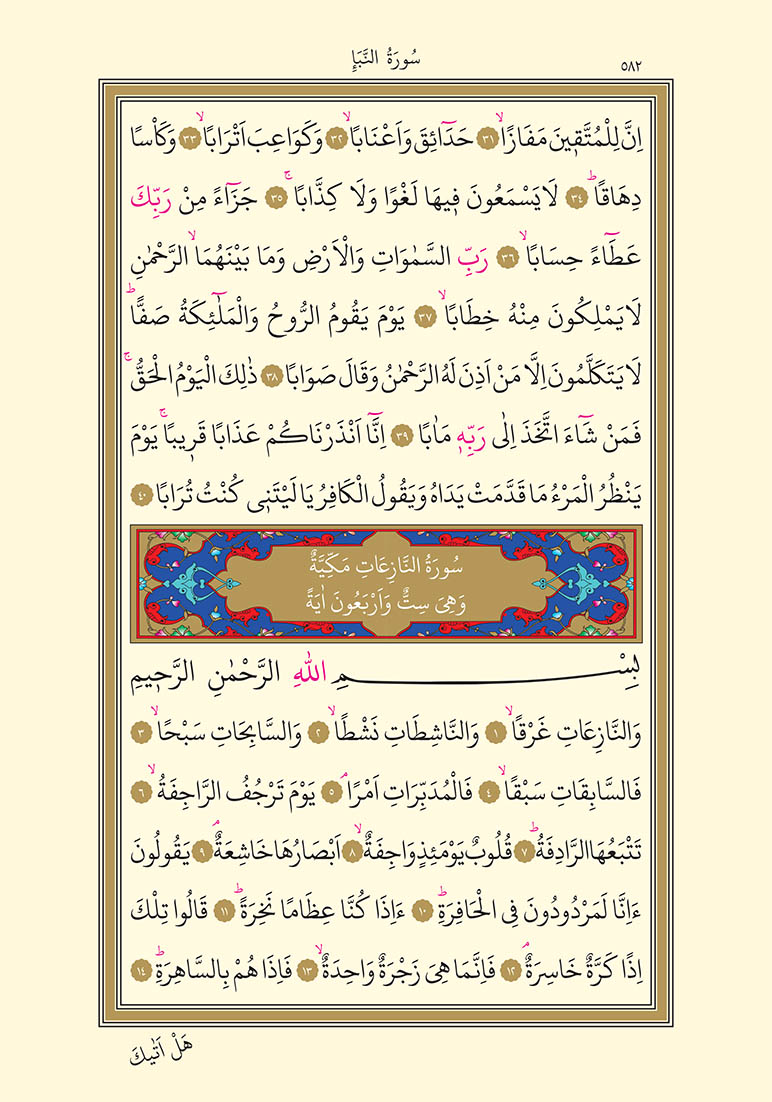 سُورَةُ النَّبَأِ ٥٨٢
اِنَّ لِلْمُتَّق۪ينَ مَفَازًاۙ ٣١ حَدَٓائِقَ وَاَعْنَابًاۙ ٣٢ وَكَوَاعِبَ اَتْرَابًاۙ ٣٣ وَكَأْسًا
دِهَاقًاۜ ٣٤ لَا يَسْمَعُونَ ف۪يهَا لَغْوًا وَلَا كِذَّابًاۚ ٣٥ جَزَٓاءً مِنْ رَبِّكَ
عَطَٓاءً حِسَابًاۙ ٣٦ رَبِّ السَّمٰوَاتِ وَالْاَرْضِ وَمَا بَيْنَهُمَاۙ الرَّحْمٰنِ
لَا يَمْلِكُونَ مِنْهُ خِطَابًاۙ ٣٧ يَوْمَ يَقُومُ الرُّوحُ وَالْمَلٰٓئِكَةُ صَفًّاۜ
لَا يَتَكَلَّمُونَ اِلَّا مَنْ اَذِنَ لَهُ الرَّحْمٰنُ وَقَالَ صَوَابًا ٣٨ ذٰلِكَ الْيَوْمُ الْحَقُّۚ
فَمَنْ شَٓاءَ اتَّخَذَ اِلٰى رَبِّه۪ مَاٰبًا ٣٩ اِنَّٓا اَنْذَرْنَاكُمْ عَذَابًا قَر۪يبًاۚ يَوْمَ
يَنْظُرُ الْمَرْءُ مَا قَدَّمَتْ يَدَاهُ وَيَقُولُ الْكَافِرُ يَا لَيْتَن۪ى كُنْتُ تُرَابًا ٤٠
سُورَةُ النَّازِعَاتِ مَكِّيَّةٌ
وَهِىَ سِتٌّ وَاَرْبَعُونَ اٰيَةً
بِسْمِ اللّٰهِ الرَّحْمٰنِ الرَّح۪يمِ
وَالنَّازِعَاتِ غَرْقًاۙ ١ وَالنَّاشِطَاتِ نَشْطًاۙ ٢ وَالسَّابِحَاتِ سَبْحًاۙ ٣
فَالسَّابِقَاتِ سَبْقًاۙ ٤ فَالْمُدَبِّرَاتِ اَمْرًاۢ ٥ يَوْمَ تَرْجُفُ الرَّاجِفَةُۙ ٦
تَتْبَعُهَا الرَّادِفَةُۜ ٧ قُلُوبٌ يَوْمَئِذٍ وَاجِفَةٌۙ ٨ اَبْصَارُهَا خَاشِعَةٌۢ ٩ يَقُولُونَ
ءَاِنَّا لَمَرْدُودُونَ فِى الْحَافِرَةِۜ ١٠ ءَاِذَا كُنَّا عِظَامًا نَخِرَةًۜ ١١ قَالُوا تِلْكَ
اِذًا كَرَّةٌ خَاسِرَةٌۢ ١٢ فَاِنَّمَا هِىَ زَجْرَةٌ وَاحِدَةٌۙ ١٣ فَاِذَا هُمْ بِالسَّاهِرَةِۜ ١٤
هَلْ اَتٰيكَ